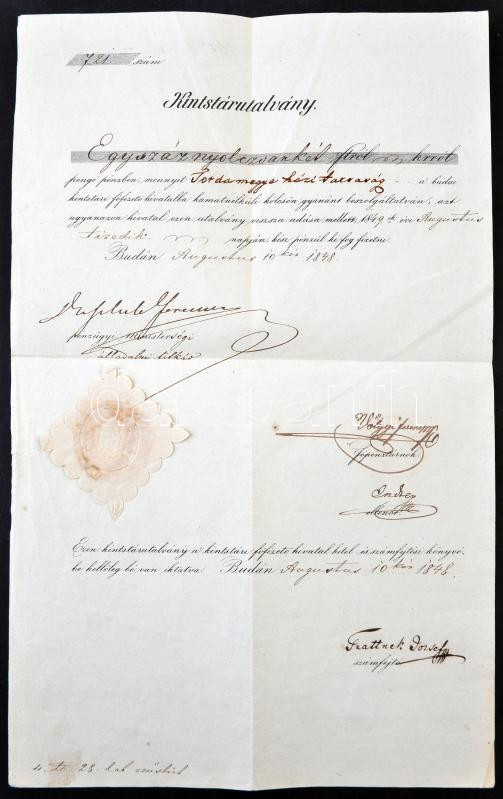 721. szám
Kintstárutalvány.
Egyszáz nyolczvankét ftról krról
pengő pénzben, mennyit Tordamegye házi a budai
kintstári főfizető hivatalba kamatnélküli kölcsön gyanánt beszolgáltatván, azt
ugyanazon hivatal ezen utalvány vissza adása mellett 1849 évi Augustus
tizedik napján kész pénzül ki fog fizetni.
Budán Augustus 10 kén 1848.
Ferencz
pénzügyi ministerségi
álladalmi titkár
Ferencz
főpénztárnok
Ezen kintstárutalvány a kintstári főfizető hivatal hitel és számfejtési könyvé-
be kellőleg bé van iktatva. Budán Augustus 10 kén 1848.
József
számfejtő